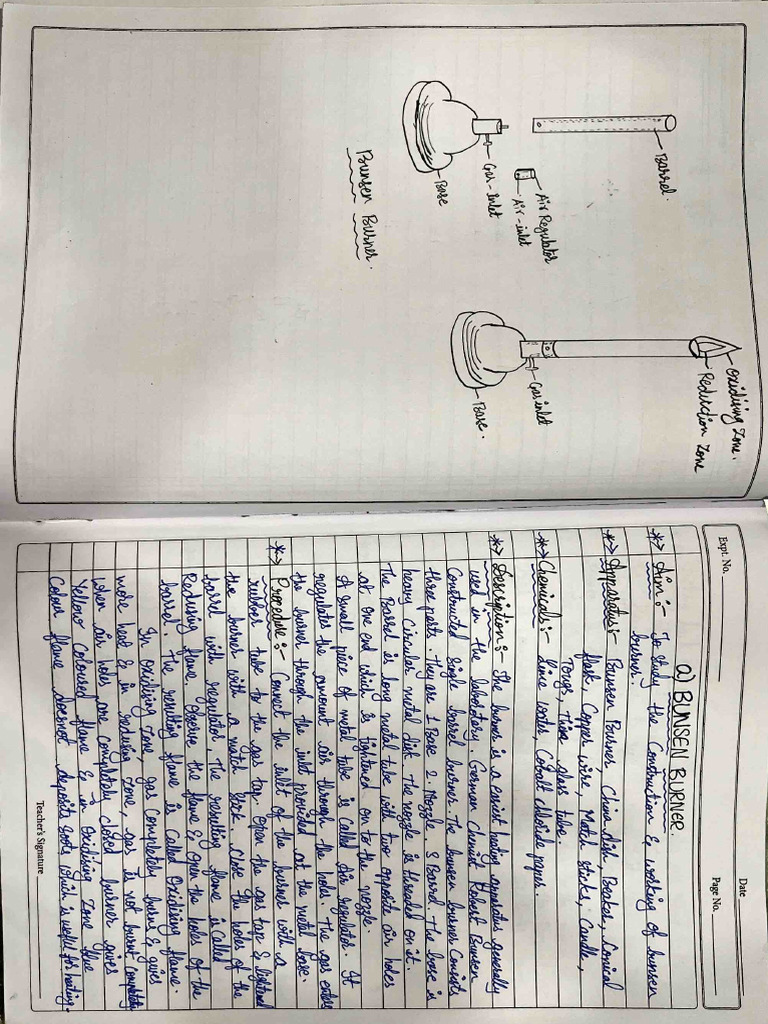 Barrel.
Air Regulator
Air-inlet
Gas-inlet
Base
Bunsen Burner.
Oxidising Zone.
Reduction Zone
Gas inlet
Base.
Date
Expt. No.
Page No.
a) BUNSEN BURNER.
*→ Aim:- To study the Construction & working of bunsen
burner.
*→ Apparatus:- Bunsen Burner China dish, Beaker, Conical
flask, Copper wire, Match sticks, Candle,
Tongs, glass tube.
*→ Chemicals:- Lime water, Cobalt chloride paper.
*→ Description:- The burner is a heating apparatus generally
used in the laboratory. German Chemist Robert Bunsen
Constructed single barrel burner. The bunsen burner consists
three parts. They are 1 Base 2. Nozzle. 3 Barrel. The base is
heavy circular metal disk. The nozzle is threaded on it.
The Barrel is long metal tube with two opposite air holes
at one end which is tightened on to the nozzle.
A small piece of metal tube is called Air regulator. It
regulates the amount air through the holes. The gas enters
the burner through the inlet provided at the metal base.
*→ Procedure:- Connect the inlet of the burner with a
rubber tube to the gas tap. Open the gas tap &
the burner with a match stick. Close the holes of the
barrel with regulator, The resulting flame is called
Reducing flame. Observe the flame & open the holes of the
barrel. The resulting flame is called Oxidising flame.
In oxidising zone, gas completely burns & gives
more heat & in reducing zone, gas is not burnt completely
when air holes are completely closed burner gives
Yellow Coloured flame & in Oxidising Zone blue
Colour flame doesnot deposits soots, which is useful for heating.
Teacher's Signature